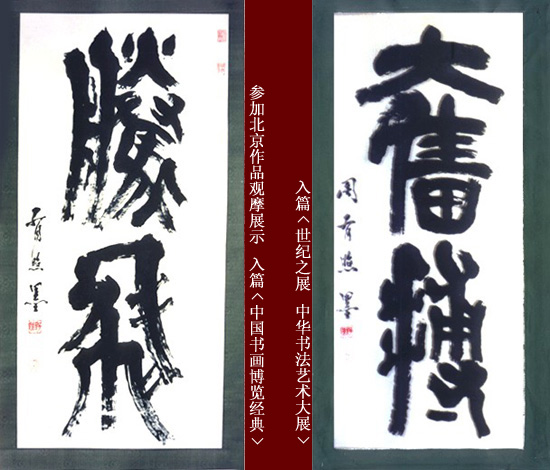 騰飛
墨
参加北京作品观摩展示 入篇<中国书画博览经典>
入篇<世纪之展 中华书法艺术大展>
奮搏
周 墨